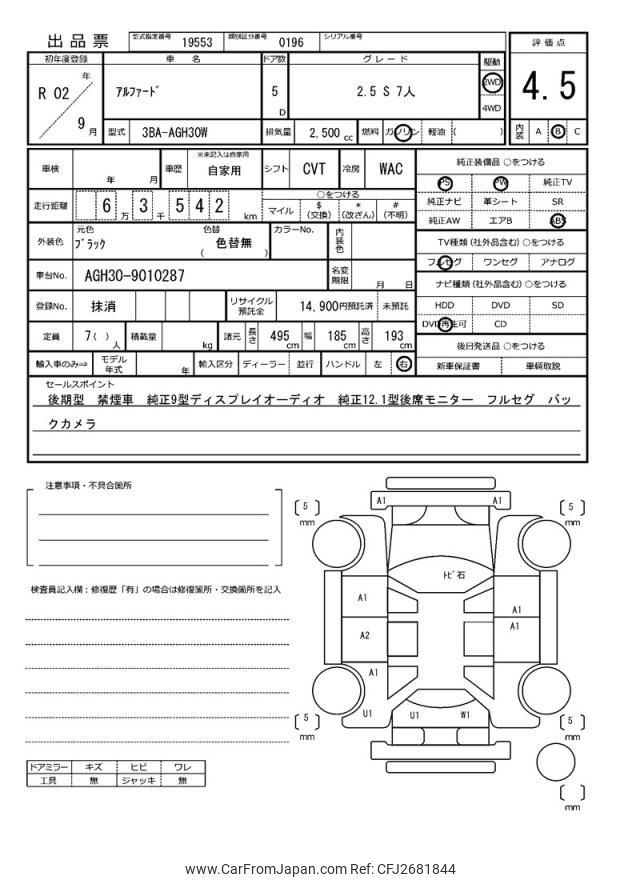 出品票 型式指定番号 19553 類別区分番号 0196 シリアル番号
評価点
4.5
内装 A B C
初年度登録 車名 ドア数 グレード 駆動
R 02 年 9 月
アルファード 5 D 2.5 S 7人 2WD 4WD
型式 3BA-AGH30W 排気量 2,500 cc 燃料 ガソリン 軽油 ( )
車検 年 月 車歴 ※未記入は自家用 自家用 シフト CVT 冷房 WAC
走行距離 6 万 3 千 5 4 2 km ○をつける マイル $ (交換) * (改ざん) # (不明)
外装色 元色 ブラック 色替 ( 色替無 ) カラーNo. 内装色
車台No. AGH30-9010287 名変期限 月 日
登録No. 抹消 リサイクル預託金 14,900円預託済 未預託
定員 7 ( ) 人 積載量 kg 諸元 長さ 495 cm 幅 185 cm 高さ 193 cm
輸入車のみ⇒ モデル年式 年 輸入区分 ディーラー 並行 ハンドル 左 右
純正装備品 ○をつける
PS PW 純正TV
純正ナビ 革シート SR
純正AW エアB ABS
TV種類 (社外品含む) ○をつける
フルセグ ワンセグ アナログ
ナビ種類 (社外品含む) ○をつける
HDD DVD SD
DVD再生可 CD
後日発送品 ○をつける
新車保証書 車輌取説
セールスポイント
後期型 禁煙車 純正9型ディスプレイオーディオ 純正12.1型後席モニター フルセグ バッ
クカメラ
注意事項・不具合箇所
検査員記入欄：修復歴「有」の場合は修復箇所・交換箇所を記入
ドアミラー キズ ヒビ ワレ
工具 無 ジャッキ 無
A1 A1
[ 5 ] mm [ 5 ] mm
トビ石
A1 A1
A2 A1
A1
U1 U1 W1
[ 5 ] mm [ 5 ] mm
[ ] mm
www.CarFromJapan.com Ref: CFJ2681844